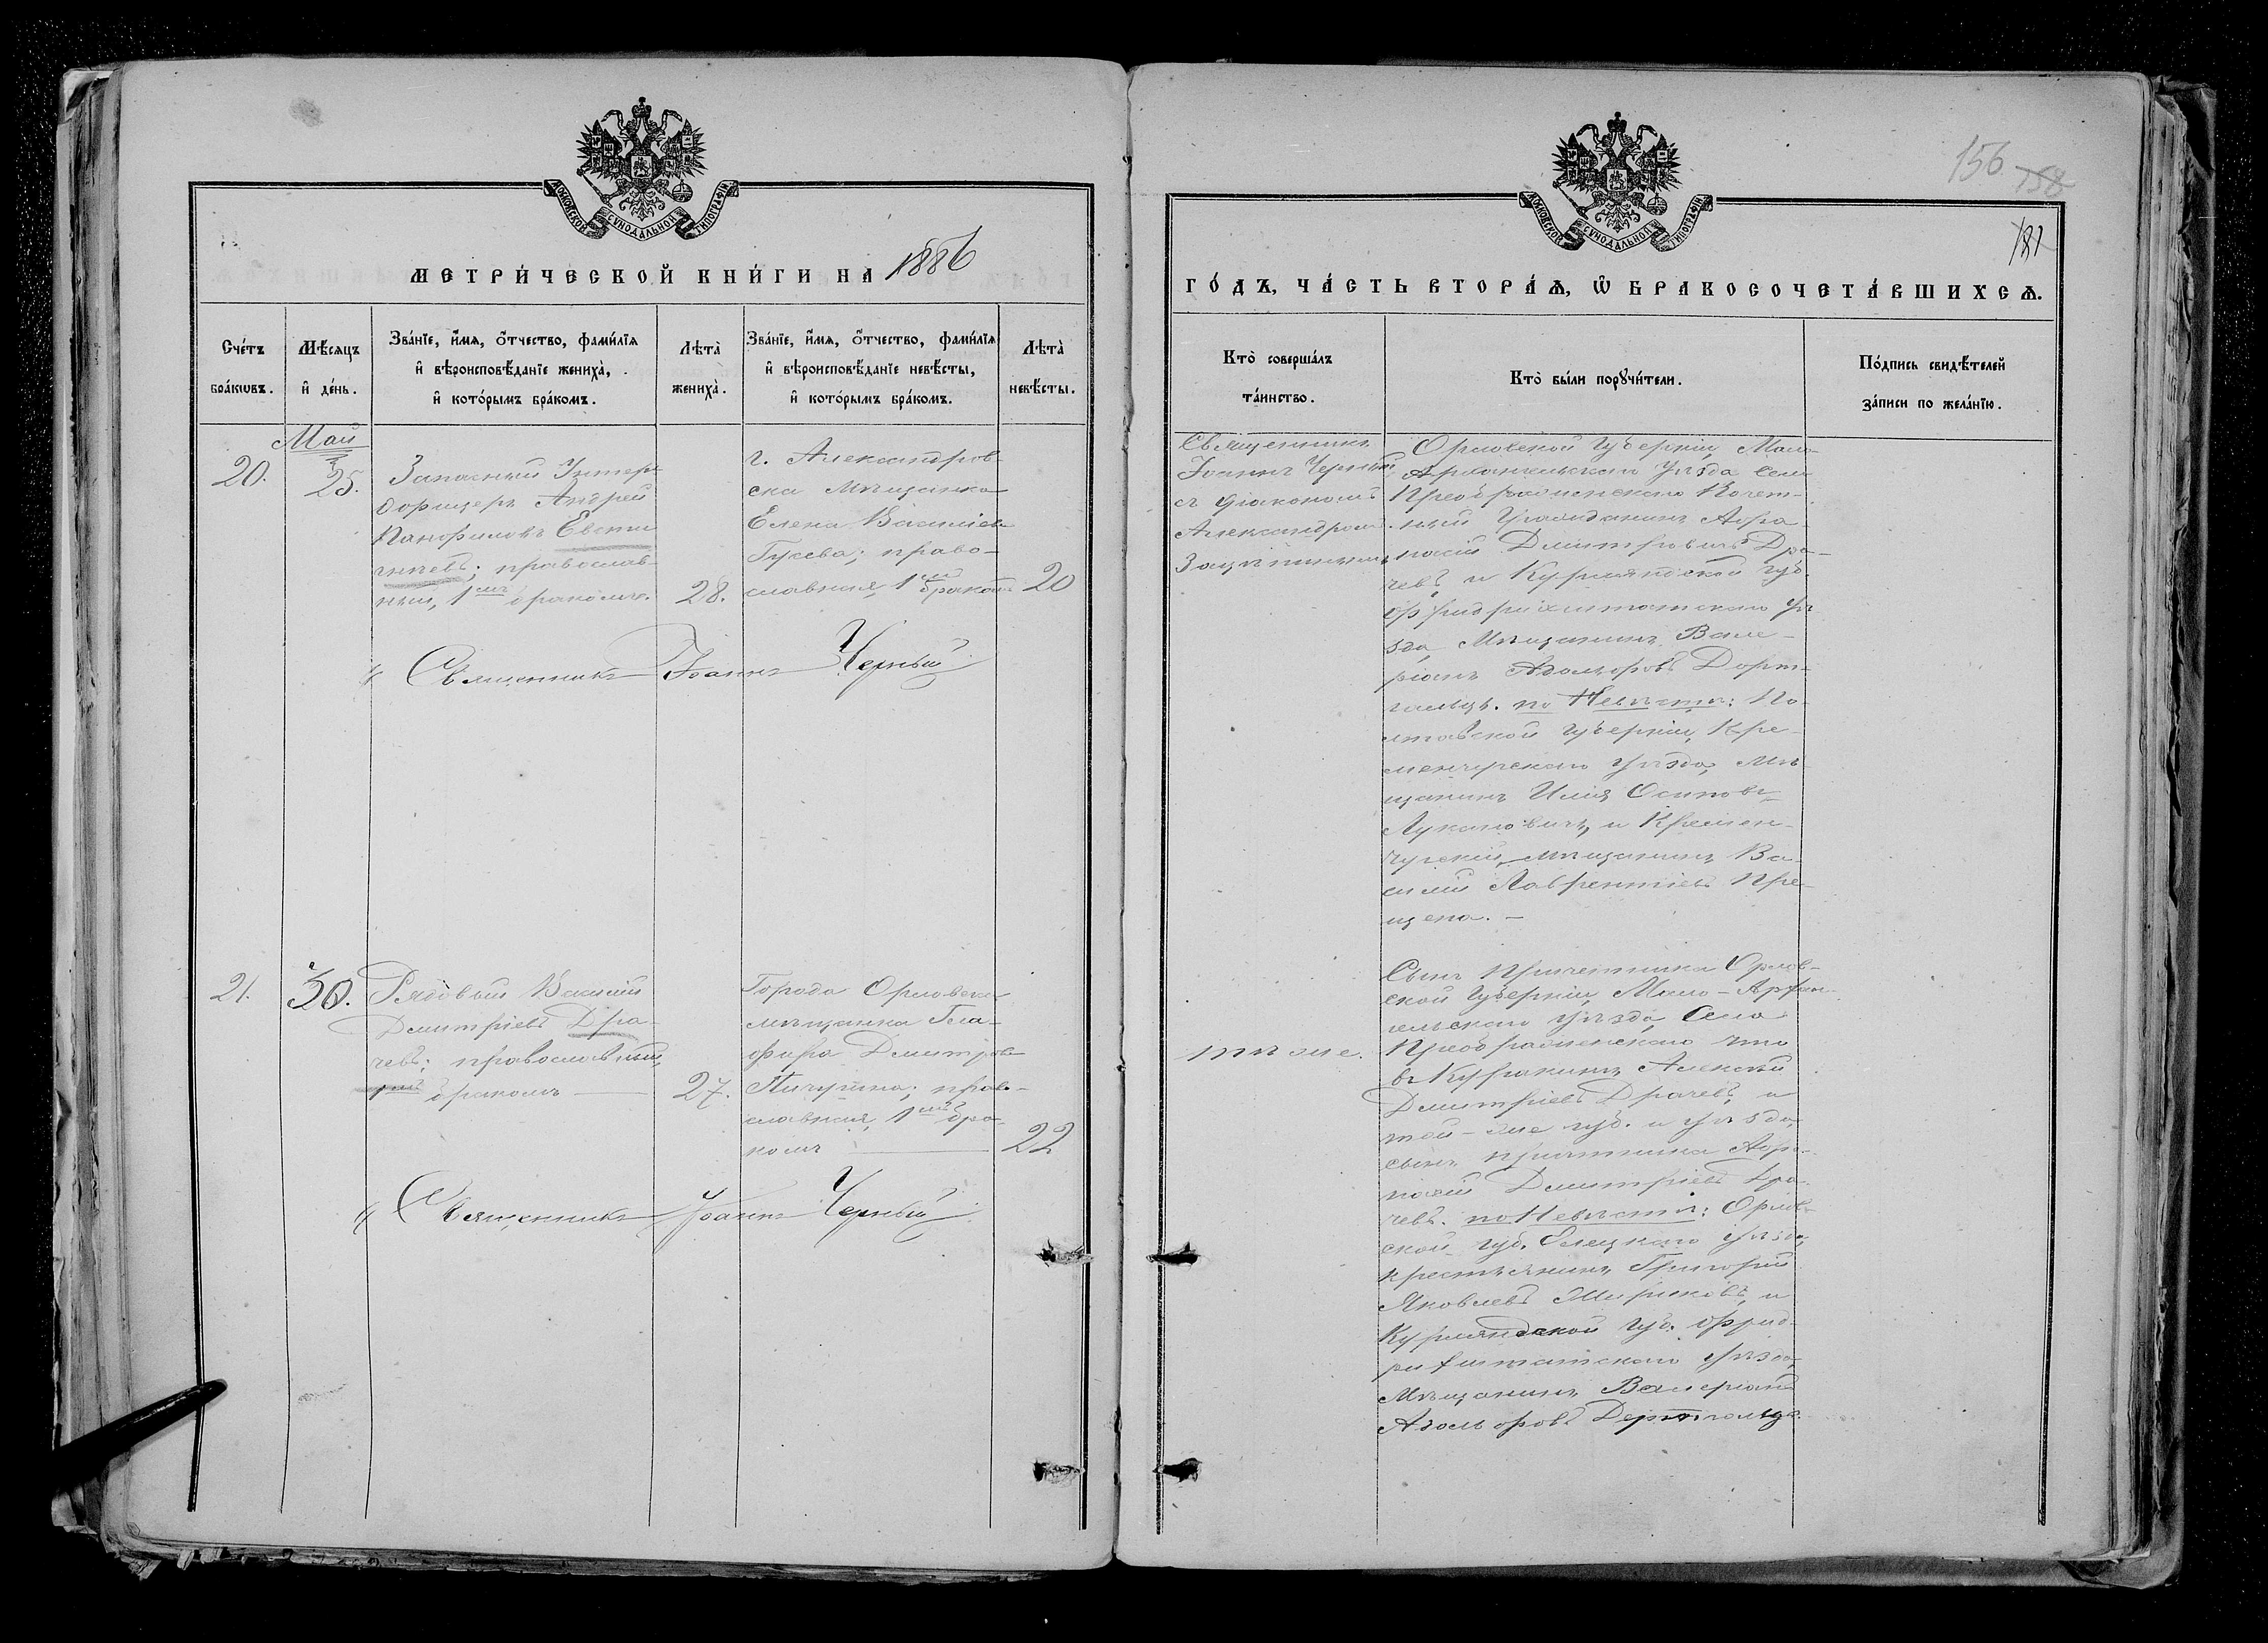 МОСКОВСКОЙ СѴНОДАЛЬНОЙ ТИПОГРАФІИ
МЕТРИ́ЧЕСКОЙ КНИ́ГИ НА 1886
Сче́тъ бра́кѡвъ.
Мѣ́сяцъ и҆ де́нь.
Зва́нїе, и҆́мя, ѻ҆́тчество, фами́лїя
и҆ вѣроисповѣ́данїе жениха̀,
и҆ кото́рымъ бра́комъ.
Лѣта̀ жениха̀.
Зва́нїе, и҆́мя, ѻ҆́тчество, фами́лїя
и҆ вѣроисповѣ́данїе невѣ́сты,
и҆ кото́рымъ бра́комъ.
Лѣта̀ невѣ́сты.
Май
20.
25.
Запасный Унтер
Офицеръ Андрей
Панфиловъ Евсти
гнѣевъ; православ-
ный, 1мъ бракомъ.
28.
г. Александров-
ска Мѣщанка
Елена Василіева
Гусева; право-
славная, 1мъ бракомъ
20
Священникъ Іоаннъ Черный
21.
30.
Рядовый Василій
Дмитріевъ Дра-
чевъ; православный,
1мъ бракомъ
27.
Города Орловска
мѣщанка Гла-
фира Дмитрова
Пичугина; право-
славная, 1мъ бра-
комъ
22
Священникъ Іоаннъ Черный
156 158
181
МОСКОВСКОЙ СѴНОДАЛЬНОЙ ТИПОГРАФІИ
ГО́ДЪ, ЧА́СТЬ ВТОРА́Ѧ, Ѡ҆ БРАКОСОЧЕТА́ВШИХСѦ.
Кто̀ соверша́лъ
та́инство.
Кто̀ бы́ли порꙋчи́тели.
По́дпись свидѣ́телей
за́писи по жела́нїю.
Священникъ
Іоаннъ Черный
съ діакономъ
Александромъ
Орловской губерніи, Мало-
Архангельскаго уѣзда Села
Преображенскаго Почет-
ный Гражданинъ Афа-
насій Дмитровичъ Дра-
чевъ и Курляндской губ.
Фридрихштатскаго уѣ
зда, Мѣщанинъ Вале-
ріанъ Адольфовъ Дорт-
гольцъ. по Невѣстѣ: По-
лтавской губерніи, Кре-
менчугскаго уѣзда, Мѣ-
щанинъ Илія Осиповъ
Лукановичъ, и Кремен-
чугскій, мѣщанинъ, Ва-
силій Лаврентіевъ Пре-
щепа. –
тѣ же.
Сынъ Причетника Орлов-
ской Губерніи, Мало-Архан-
гельскаго уѣзда, Села
Преображенскаго что
въ Куракинѣ, Алексѣй
Дмитріевъ Драчевъ, и
той-же губ. и уѣзда,
сынъ причетника Афа-
насій Дмитріевъ Дра-
чевъ. по Невѣстѣ: Орлов-
ской губ. Елецкаго уѣзда,
крестьянинъ Григорій
Яковлевъ и
Курляндской губ. Фрид-
рихштатскаго уѣзда,
Мѣщанинъ Валеріанъ
Адольфовъ Дертгольцъ.